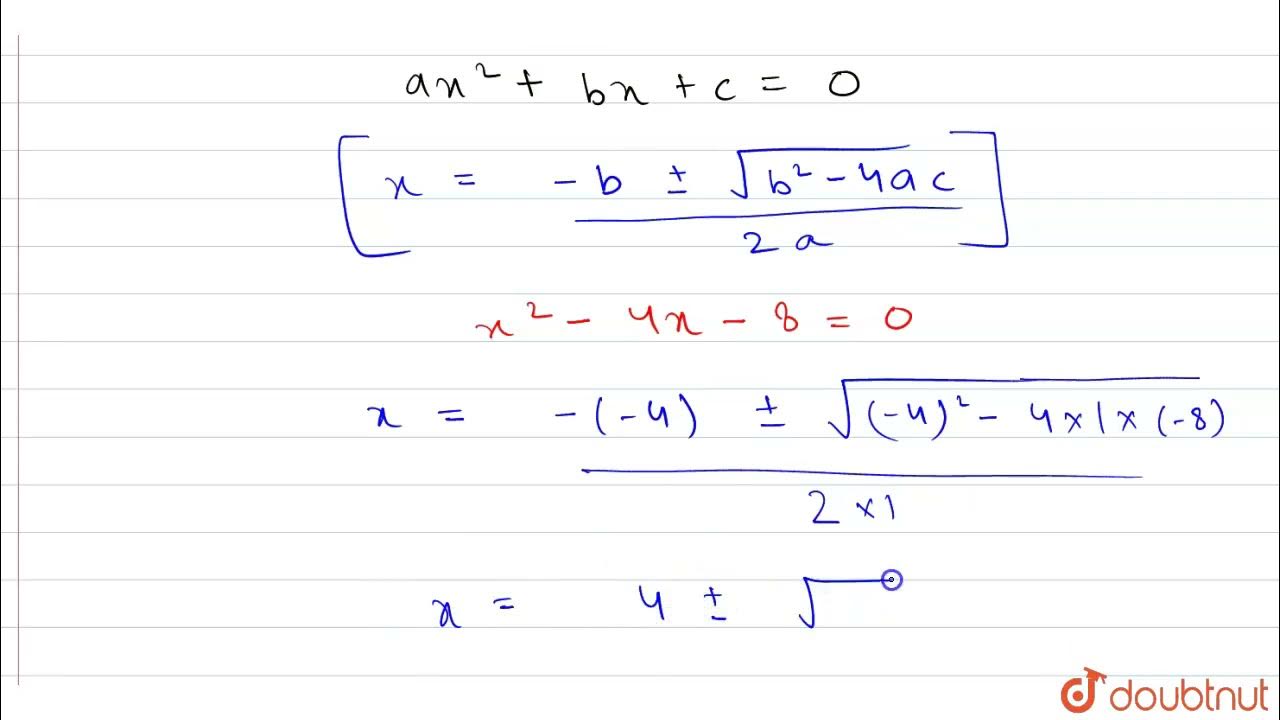 ax² + bx + c = 0
x = -b ± √b² - 4ac
2a
x² - 4x - 8 = 0
x = -(-4) ± √(-4)² - 4×1×(-8)
2×1
x = 4 ± √
doubtnut